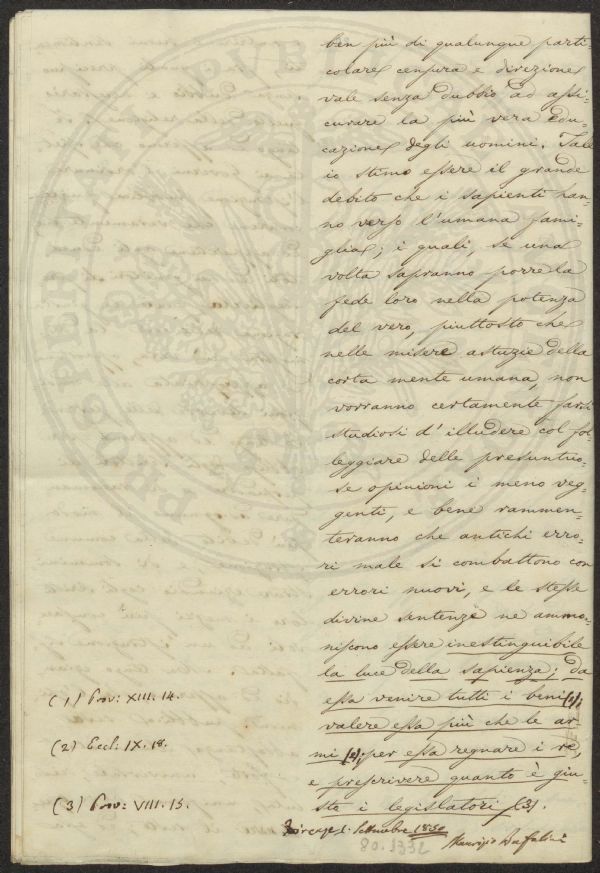 ben più di qualunque parti-
colare censura e direzione
vale senza dubbio ad assi-
curare la più vera edu-
cazione degli uomini. Tale
io stimo essere il grande
debito che i sapienti han-
no verso l'umana fami-
glia; i quali, se una
volta sapranno porre la
fede loro nella potenza
del vero, piuttosto che
nelle misere astuzie della
corta mente umana, non
vorranno certamente farsi
studiosi d'illudere col fol-
leggiare delle presuntuo-
se opinioni i meno veg-
genti, e bene rammen-
teranno che antichi erro-
ri male si combattono con
errori nuovi, e le stesse
divine sentenze ne ammo-
niscono essere inestinguibile
la luce della sapienza; da
essa venire tutti i beni (1);
valere essa più che le ar-
mi (2); per essa regnare i re,
e prescrivere quanto è giu-
sto i legislatori (3).
(1) Prov: XIII. 14.
(2) Eccl: IX. 18.
(3) Prov: VIII. 15.
Firenze 1. Settembre 1850
Maurizio Bufalini
80.1332
PROSPERITÀ PUBLICA